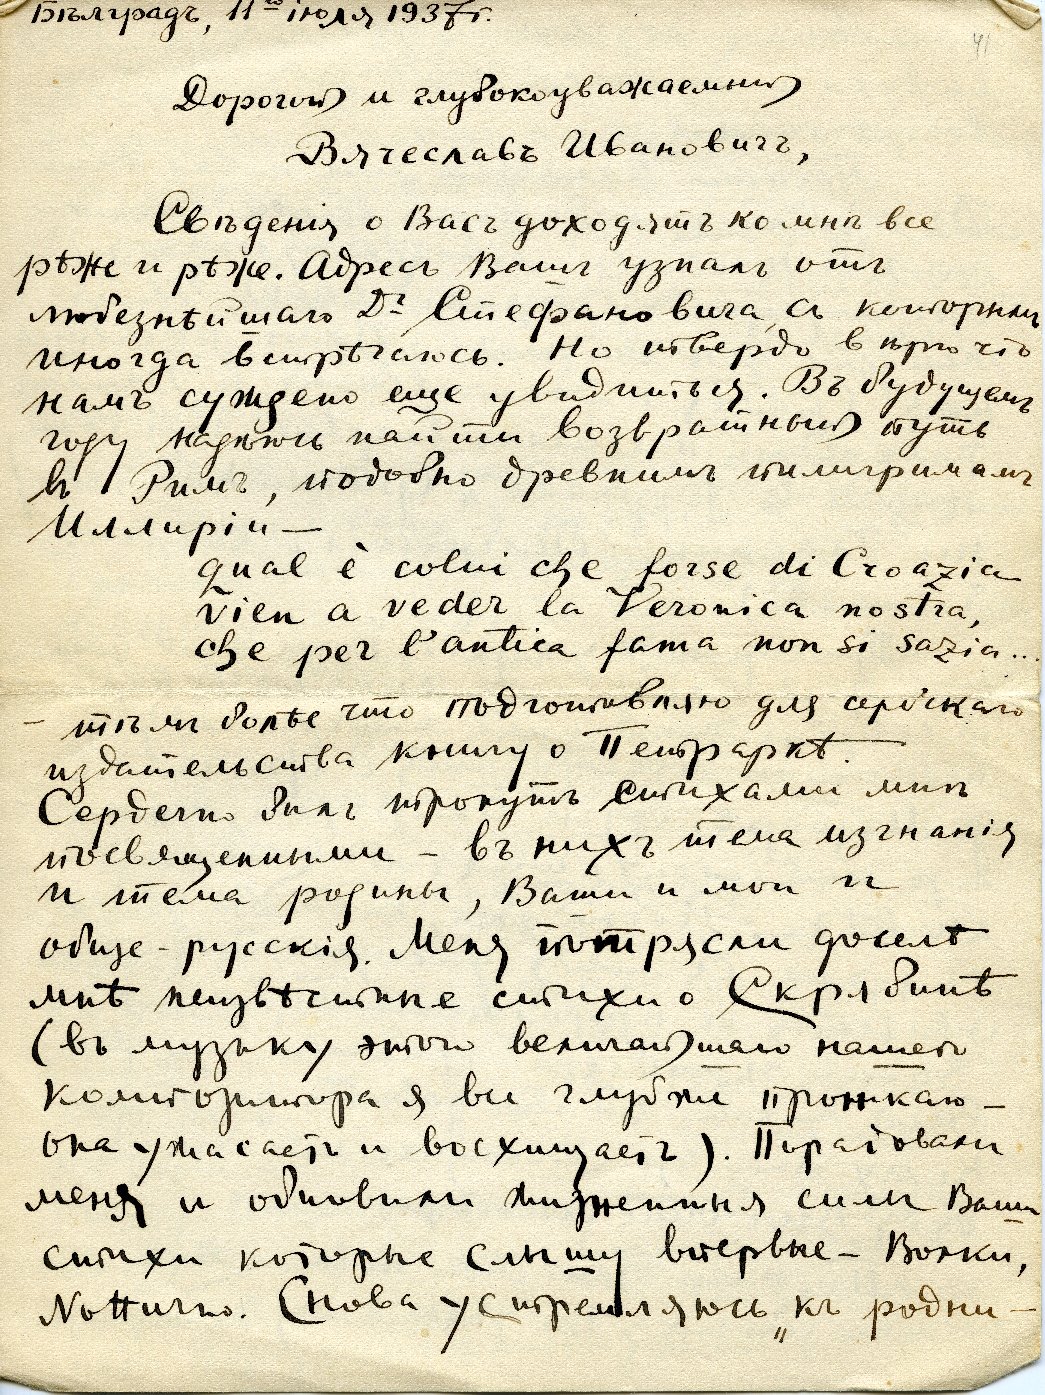 Бѣлградъ, 11го июля 1937г.
41
Дорогой и глубокоуважаемый
Вячеславъ Ивановичъ,
Свѣдѣнія о Васъ доходятъ ко мнѣ все
рѣже и рѣже. Адресъ Вашъ узналъ отъ
любезнѣйшаго Dr Стефановича, съ которымъ
иногда встрѣчаюсь. Но твердо вѣрю что
намъ суждено еще увидиться. Въ будущемъ
году надѣюсь найти возвратный путь
въ Римъ, подобно древнимъ пилигримамъ
Иллиріи —
qual è colui che forse di Croazia
vien a veder la Veronica nostra,
che per l'antica fama non si sazia...
— тѣмъ болѣе что подготовляю для сербскаго
издательства книгу о Петраркѣ.
Сердечно былъ тронутъ стихами мнѣ
посвященными — въ нихъ тема изгнанія
и тема родины, Ваши и мои и
обще-русскія. Меня потрясли доселѣ
мнѣ неизвѣстные стихи о Скрябинѣ
(въ музыку этого величайшаго нашего
композитора я все глубже проникаю —
она ужасаетъ и восхищаетъ). Порадовали
меня и обновили жизненныя силы Ваши
стихи которые слышу впервые — Волки,
Notturno. Снова устремляюсь „къ родни-